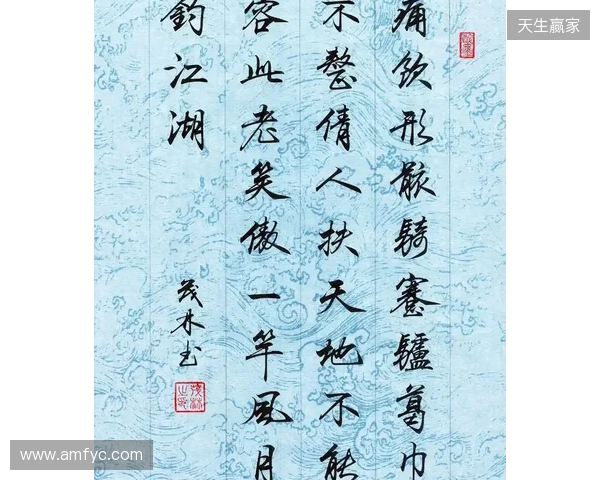 痛飲形骸騎蹇驢葛巾
不整倩人扶天地不能
容此老笑傲一竿風月
釣江湖
茂林书
天生赢家
www.amfyc.com